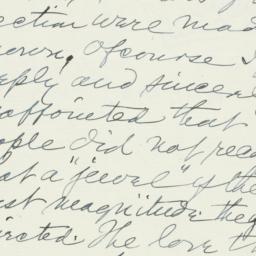 ection were mad
nown, Ofcourse I
eeply and sincerel
isappointed that
ople did not reco
hat a "jewel" of the
irst magnitude they
irected. The love th